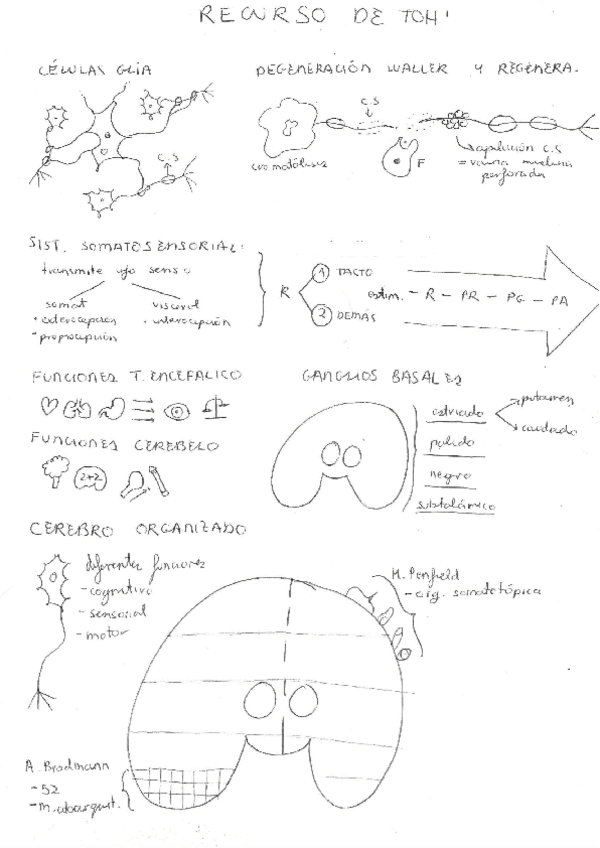 RECURSO DE TOH'
CÉLULAS GLIA
DEGENERACIÓN WALLER Y REGENERA.
C.S
C.S
F
cromatólisis
capilación C.S
= vaina mielina
perforada
SIST. SOMATOSENSORIAL:
transmite senso
somat
• exterocepción
• propiocepción
visceral
• interocepción
R
1 TACTO
2 DEMÁS
estim. - R - PR - PG - PA
FUNCIONES T. ENCEFALICO
FUNCIONES CEREBELO
2+2
GANGLIOS BASALES
estriado
putamen
caudado
palido
negro
subtalámico
CEREBRO ORGANIZADO
diferentes funciones
- cognitivo
- sensorial
- motor
M. Penfield
- org. somatotópica
A. Brodmann
- 52